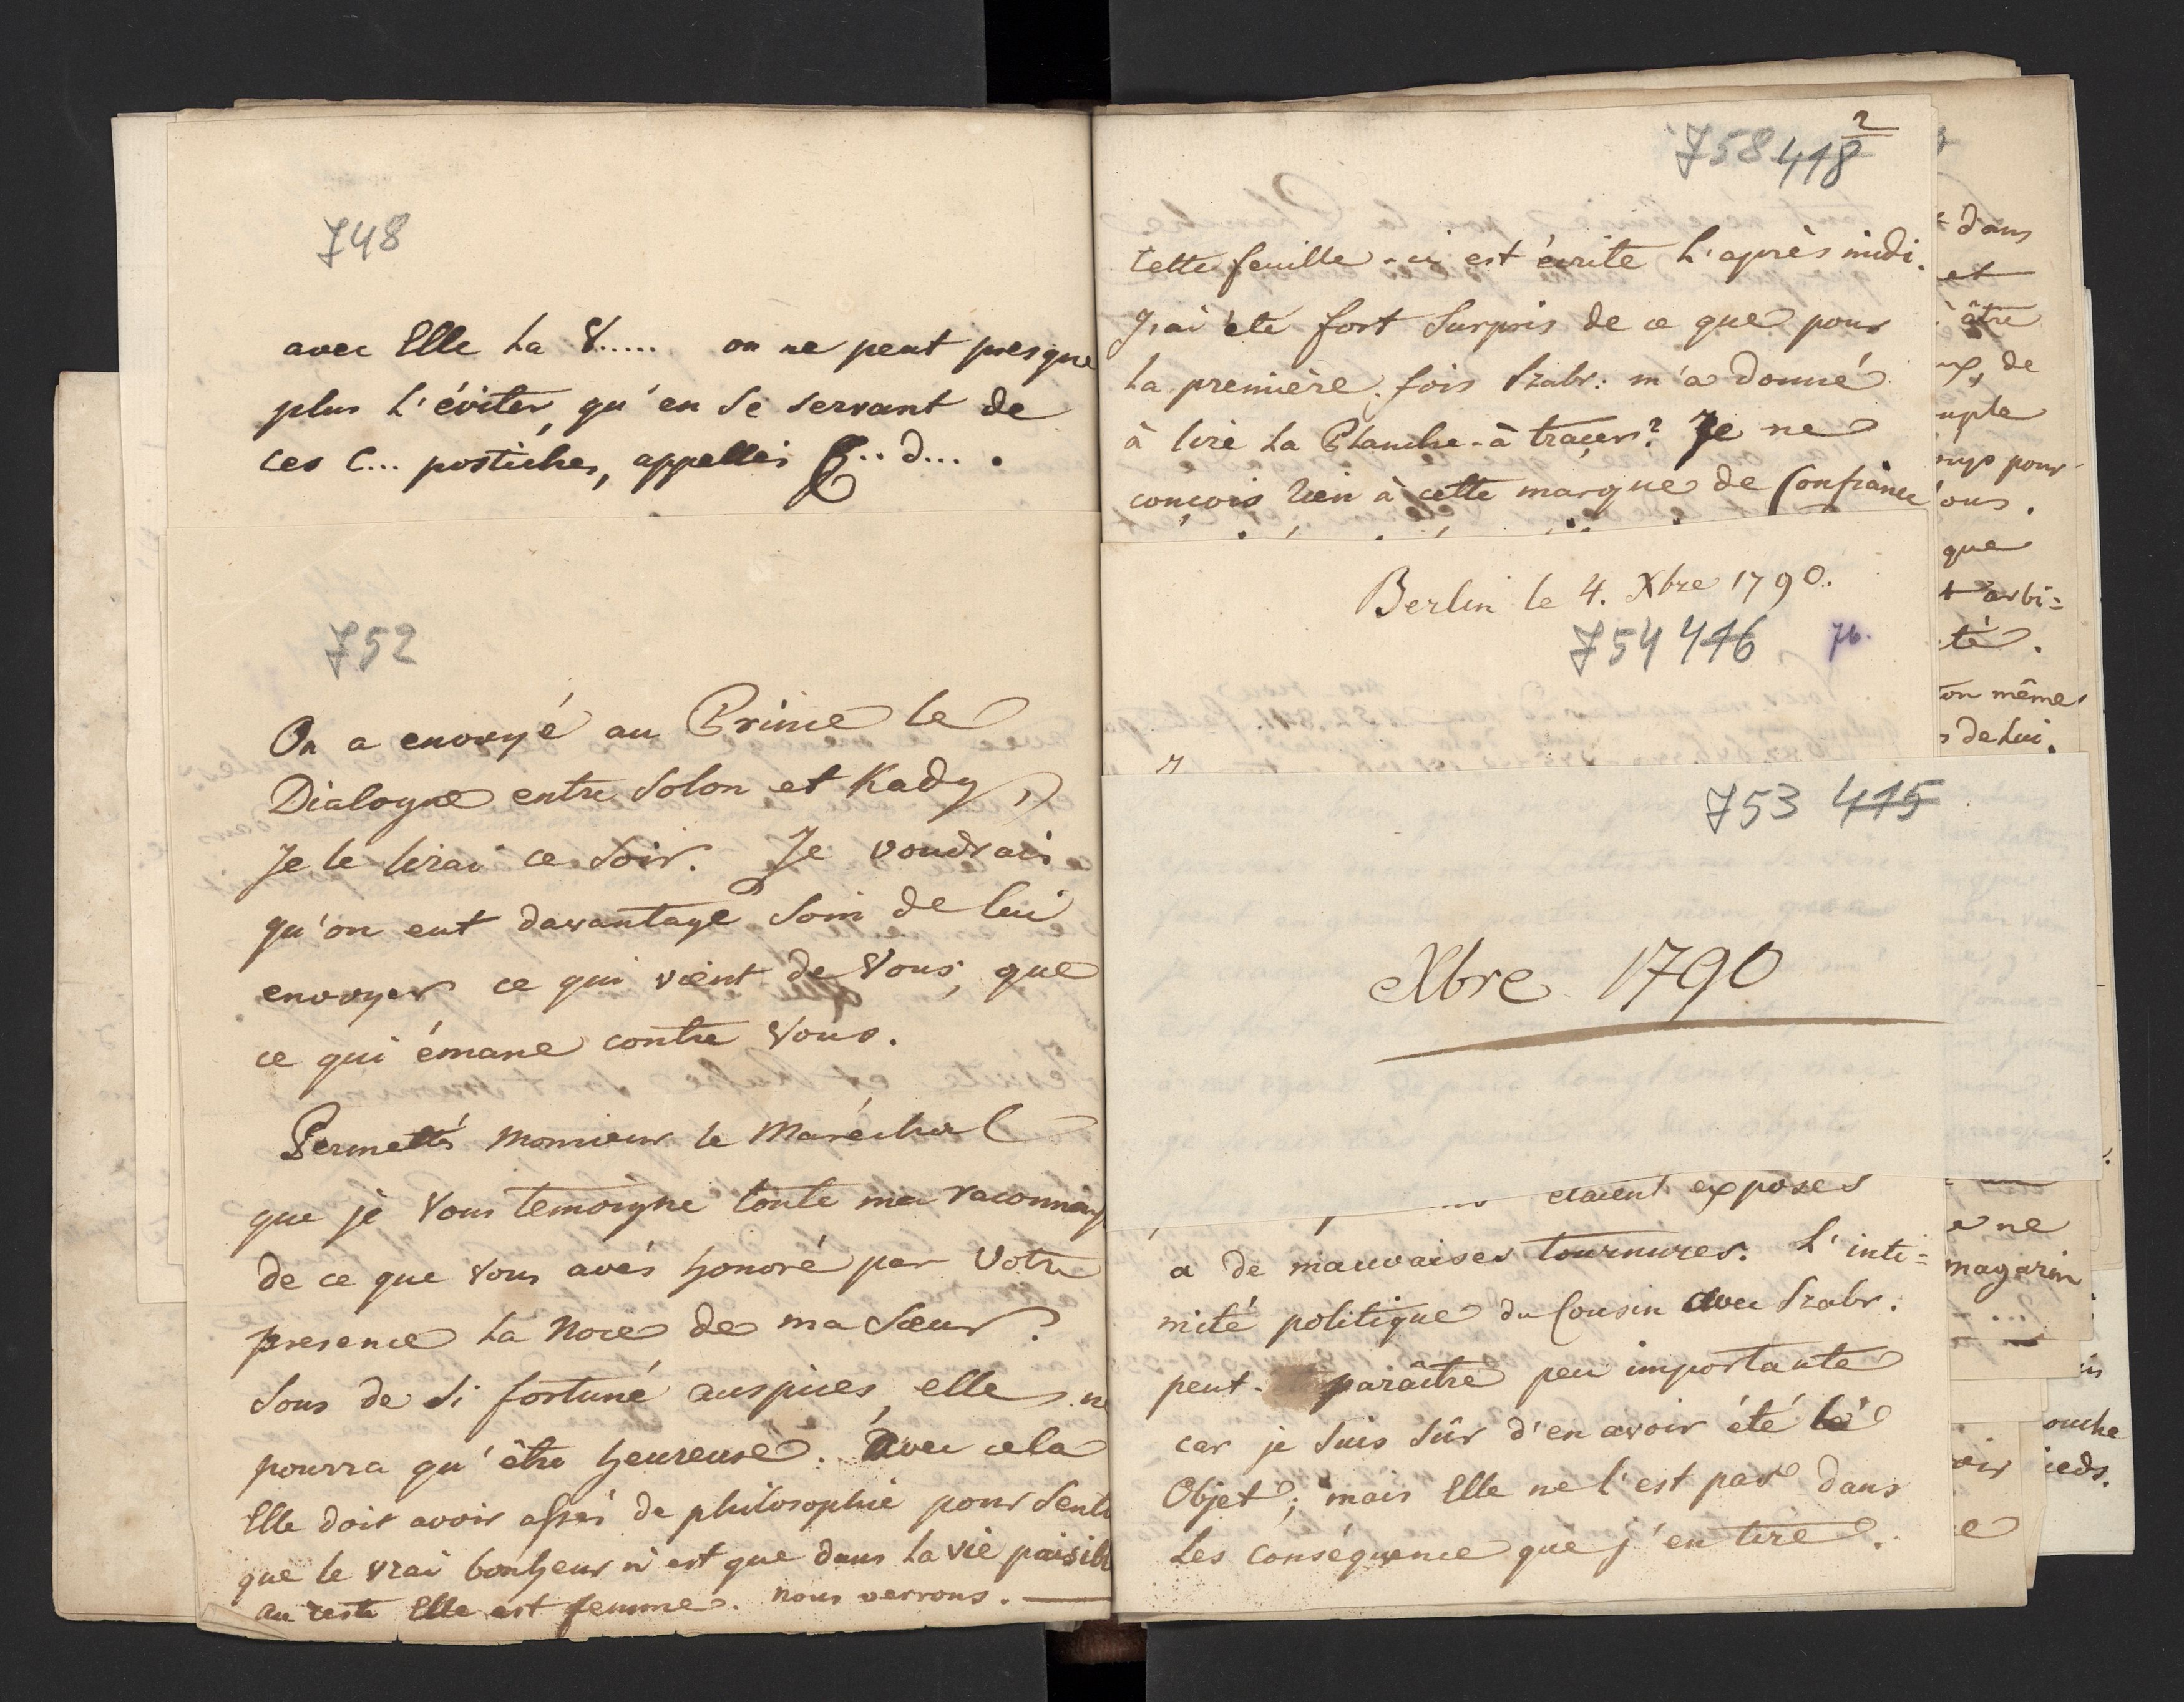 748
avec Elle la V..... on ne peut presque
plus l'éviter, qu'en se servant de
ces C... postiches, appellés G.. d... .
752
On a envoyé au Prince le
Dialogue entre Solon et Kady,
Je le lirai ce soir. Je voudrais
qu'on eut davantage soin de lui
envoyer ce qui vient de Vous, que
ce qui émane contre Vous.
Permettés Monsieur le Maréchal
que je Vous temoigne toute ma raconnais
de ce que Vous avés honoré par Votre
presence la Noce de ma Sœur.
Sous de si fortuné auspices, elle ne
pourra qu'être heureuse. Avec cela
Elle doit avoir assés de philosophie pour senti
que le vrai bonheur n'est que dans la vie paisibl
au reste Elle est femme. nous verrons. —
758 418 2
Cette feuille-ci est écrite l'après midi.
J'ai été fort surpris de ce que pour
la première fois Szabr: m'a donné
à lire la Planche-à tracer? Je ne
conçois rien à cette marque de Confiance
Berlin le 4. Xbre 1790.
754 416 76.
753 415
Xbre 1790
etaient exposes
a de mauvaises tournures. L'inti=
mité politique du Cousin avec Szabr.
peut- paraître peu importante
car je suis sûr d'en avoir été le
Objet; mais Elle ne l'est pas dans
les conséquence que j'en tire.
dans
et
âtre
de
uple
pour
ous.
que
arbi=
té.
on même
de Lui.
ne
magazin
ouche
oir ieds.